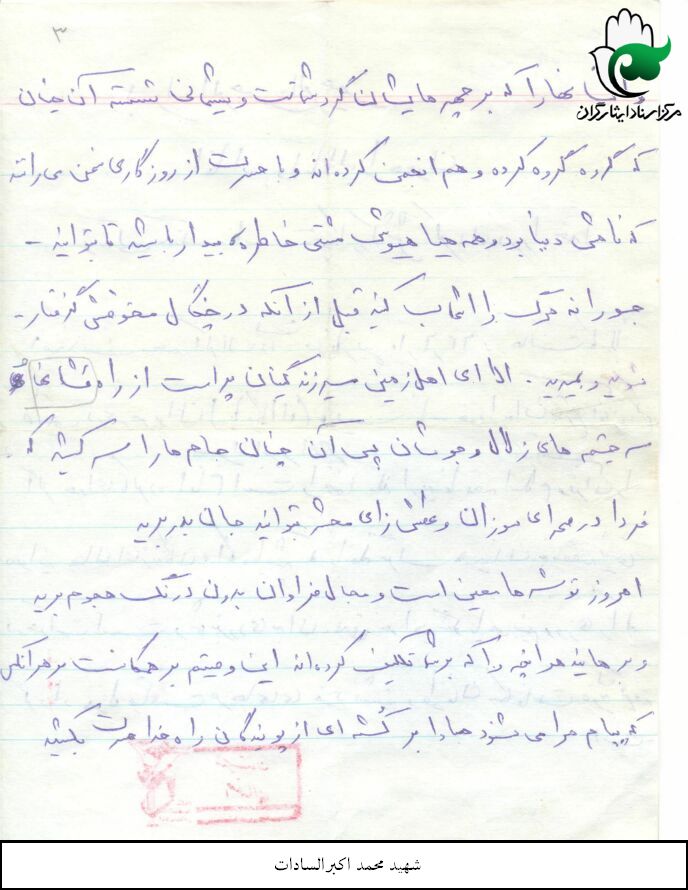 ۳
مرکز اسناد ایثارگران
و اینها را که بر چهره هایشان گرد شماتت و پشیمانی نشسته آن چنان
که گروه گروه کرده و هم انجمن کرده اند و با حسرت از روزگاری سخن می رانند
که نامش دنیا بود و همه هیاهویش مشتی خاطره بیدار باشید تا بتوانید -
جسورانه مرگ را انتخاب کنید قبل از آنکه در چنگال مخوفش گرفتار -
شوید و بمیرید . الا ای اهل زمین سرزندگیتان پر است از راه
سرچشمه های زلال و جوشان پس آن چنان جام ها را سر کشید که
فردا در صحرای سوزان و عطش زای محشر توانید جان بدر برید
امروز توشه ها معین است و مجال فراوان بدون درنگ هجوم برید
و بر هانید هر آنچه را که بر شما تکلیف کرده اند این وصیتم بر همگانست بر هر آنکس
که پیام مرا می شنود مبادا بر کُشته ای از پویندگان راه خدا حسرت بکشید
شهید محمد اکبرالسادات